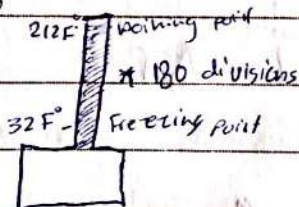 212F° Boiling point
* 180 divisions
32F° - Freezing point